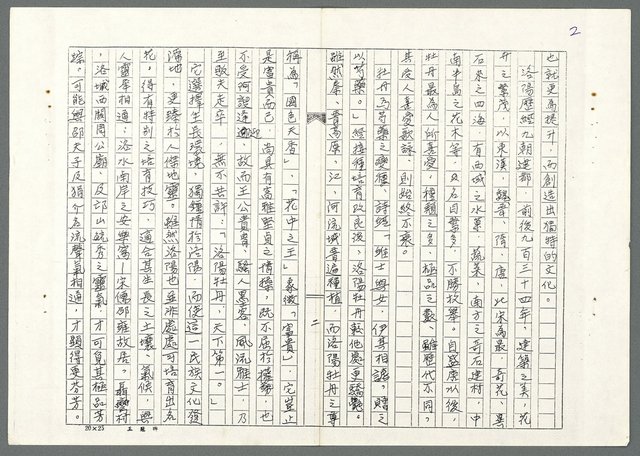 2
也就更為提升，而創造出獨特的文化。
洛陽歷經九朝建都，前後九百三十四年，建築之美，花
卉之繁茂，以東漢、魏晉、隋、唐，北宋為最，奇花、異
石來之四海，有西域之水菓、蔬菜、南方之奇石建材，中
南半島之花木等，及名目繁多，不勝枚舉。自盛唐以後，
牡丹最為人所喜愛，種類之多，極品之最，雖歷代不同，
其受人喜愛歌詠，則始終不衰。
牡丹為芍藥之變種，詩經「維士與女，伊其相謔，贈之
以芍藥。」經接種培育改良後，洛陽牡丹較他處更驕艷。
雖然秦、晉高原，江、河流域普遍種植，而洛陽牡丹之尊
稱為「國色天香」「花中之王」象徵「富貴」，它豈止
是富貴而已，尚具有高雅堅貞之情操，既不屈於權勢，也
不受阿諛逢迎，故而王公貴胄、騷人墨客，風流雅士，乃
至販夫走卒，無不共許：「洛陽牡丹，天下第一。」
它選擇生長環境，獨鍾情於洛陽，而使這一民族文化發
源地，更臻於人傑地靈。雖然洛陽也並非處處可培育出名
花。得有特別之培育技巧，適合其生長之土壤、氣候，與
人靈犀相通：洛水南岸之安樂窩—宋儒邵雍故居。
，洛城西關周公廟，及邙山毓秀之靈氣，才可覓其極品芳
踪。可能與邵夫子及殞介名流聲氣相通，才顯得更芬芳。
二
20×25